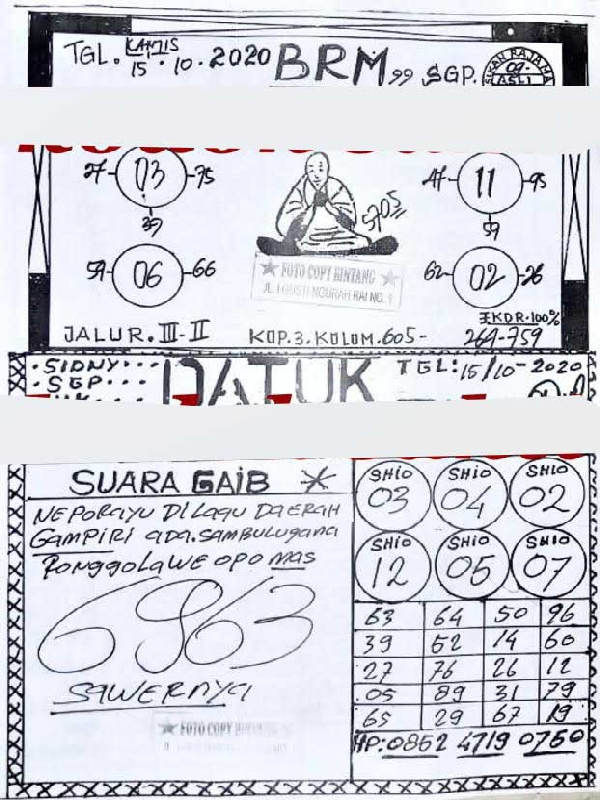 TGL. KAMIS
15.10.2020 BRM 99 SGP.
09.
ASLI
27 03 75
47 11 95
59
5705
59 06 66
62 02 26
FOTO COPY BINTANG
JL. I GUSTI NGURAH RAI NO. 1
EKDR.100%
JALUR. III-II KOP.3.KOLOM.605- 264-759
SIDNY
SGP
DATUK
TGL:15/10-2020
SUARA GAIB
NEPORAYU DI LAGU DAERAH
GAMPIRI ADA.SAMBULUGANA
RONGGOLAWE OPO MAS
6963
SAWERNYA
FOTO COPY
SHIO SHIO SHIO
03 04 02
SHIO SHIO SHIO
12 05 07
63 64 50 96
39 52 14 60
27 76 26 12
05 89 31 79
65 29 67 19
HP:0852 4719 0760